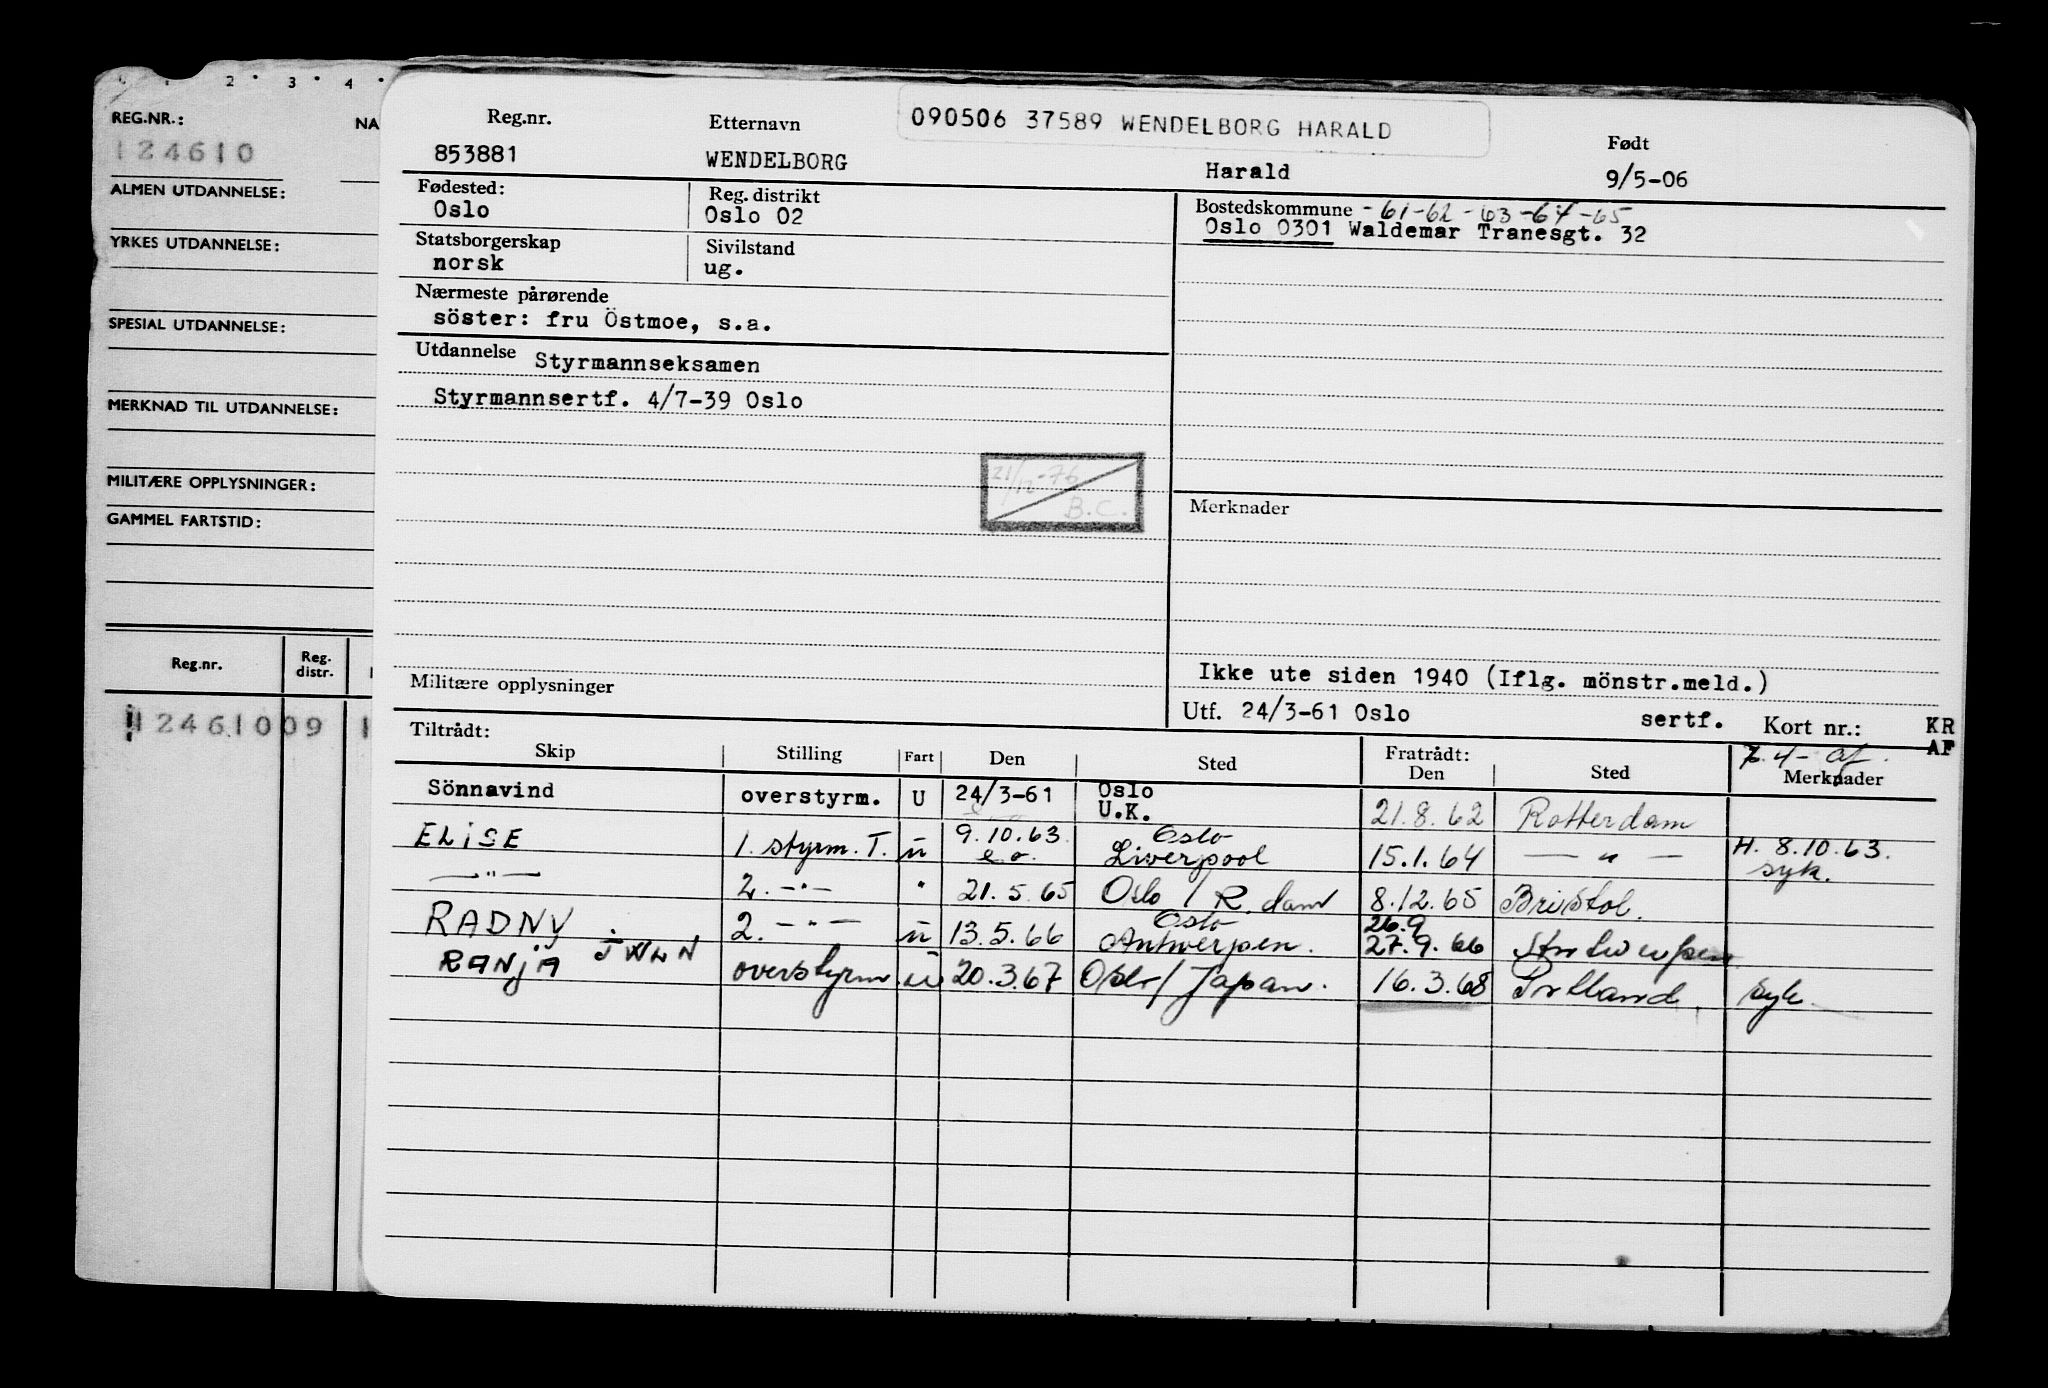 2 · 3 · 4 ·
REG.NR.: NA
124610
ALMEN UTDANNELSE:
YRKES UTDANNELSE:
SPESIAL UTDANNELSE:
MERKNAD TIL UTDANNELSE:
MILITÆRE OPPLYSNINGER:
GAMMEL FARTSTID:
Reg.nr. Reg. distr.
12461009 1
090506 37589 WENDELBORG HARALD
Reg.nr. Etternavn Født
853881 WENDELBORG Harald 9/5-06
Fødested: Reg. distrikt Bostedskommune -61-62-63-64-65
Oslo Oslo 02 Oslo 0301 Waldemar Tranesgt. 32
Statsborgerskap Sivilstand
norsk ug.
Nærmeste pårørende
söster: fru Östmoe, s.a.
Utdannelse Styrmannseksamen
Styrmannsertf. 4/7-39 Oslo
21/12-76
B.C.
Merknader
Ikke ute siden 1940 (Iflg. mönstr.meld.)
Militære opplysninger
Utf. 24/3-61 Oslo sertf. Kort nr.: KR
AF
Tiltrådt: Fratrådt:
Skip Stilling Fart Den Sted Den Sted Merknader
Sönnavind overstyrm. U 24/3-61 Oslo U.K. 21.8.62 Rotterdam
ELISE 1. styrm. T. u 9.10.63. e.o. Oslo Liverpool 15.1.64 — " — H. 8.10.63. syk.
— " — 2. — " — " 21.5.65 Oslo / R.dam 8.12.65 Bristol.
RADNY 2. — " — u 13.5.66 Oslo Antwerpen. 26.9 27.9.66 Antwerpen
RANJA overstyrm. u 20.3.67 Oslo / Japan. 16.3.68 Portland. Syk.